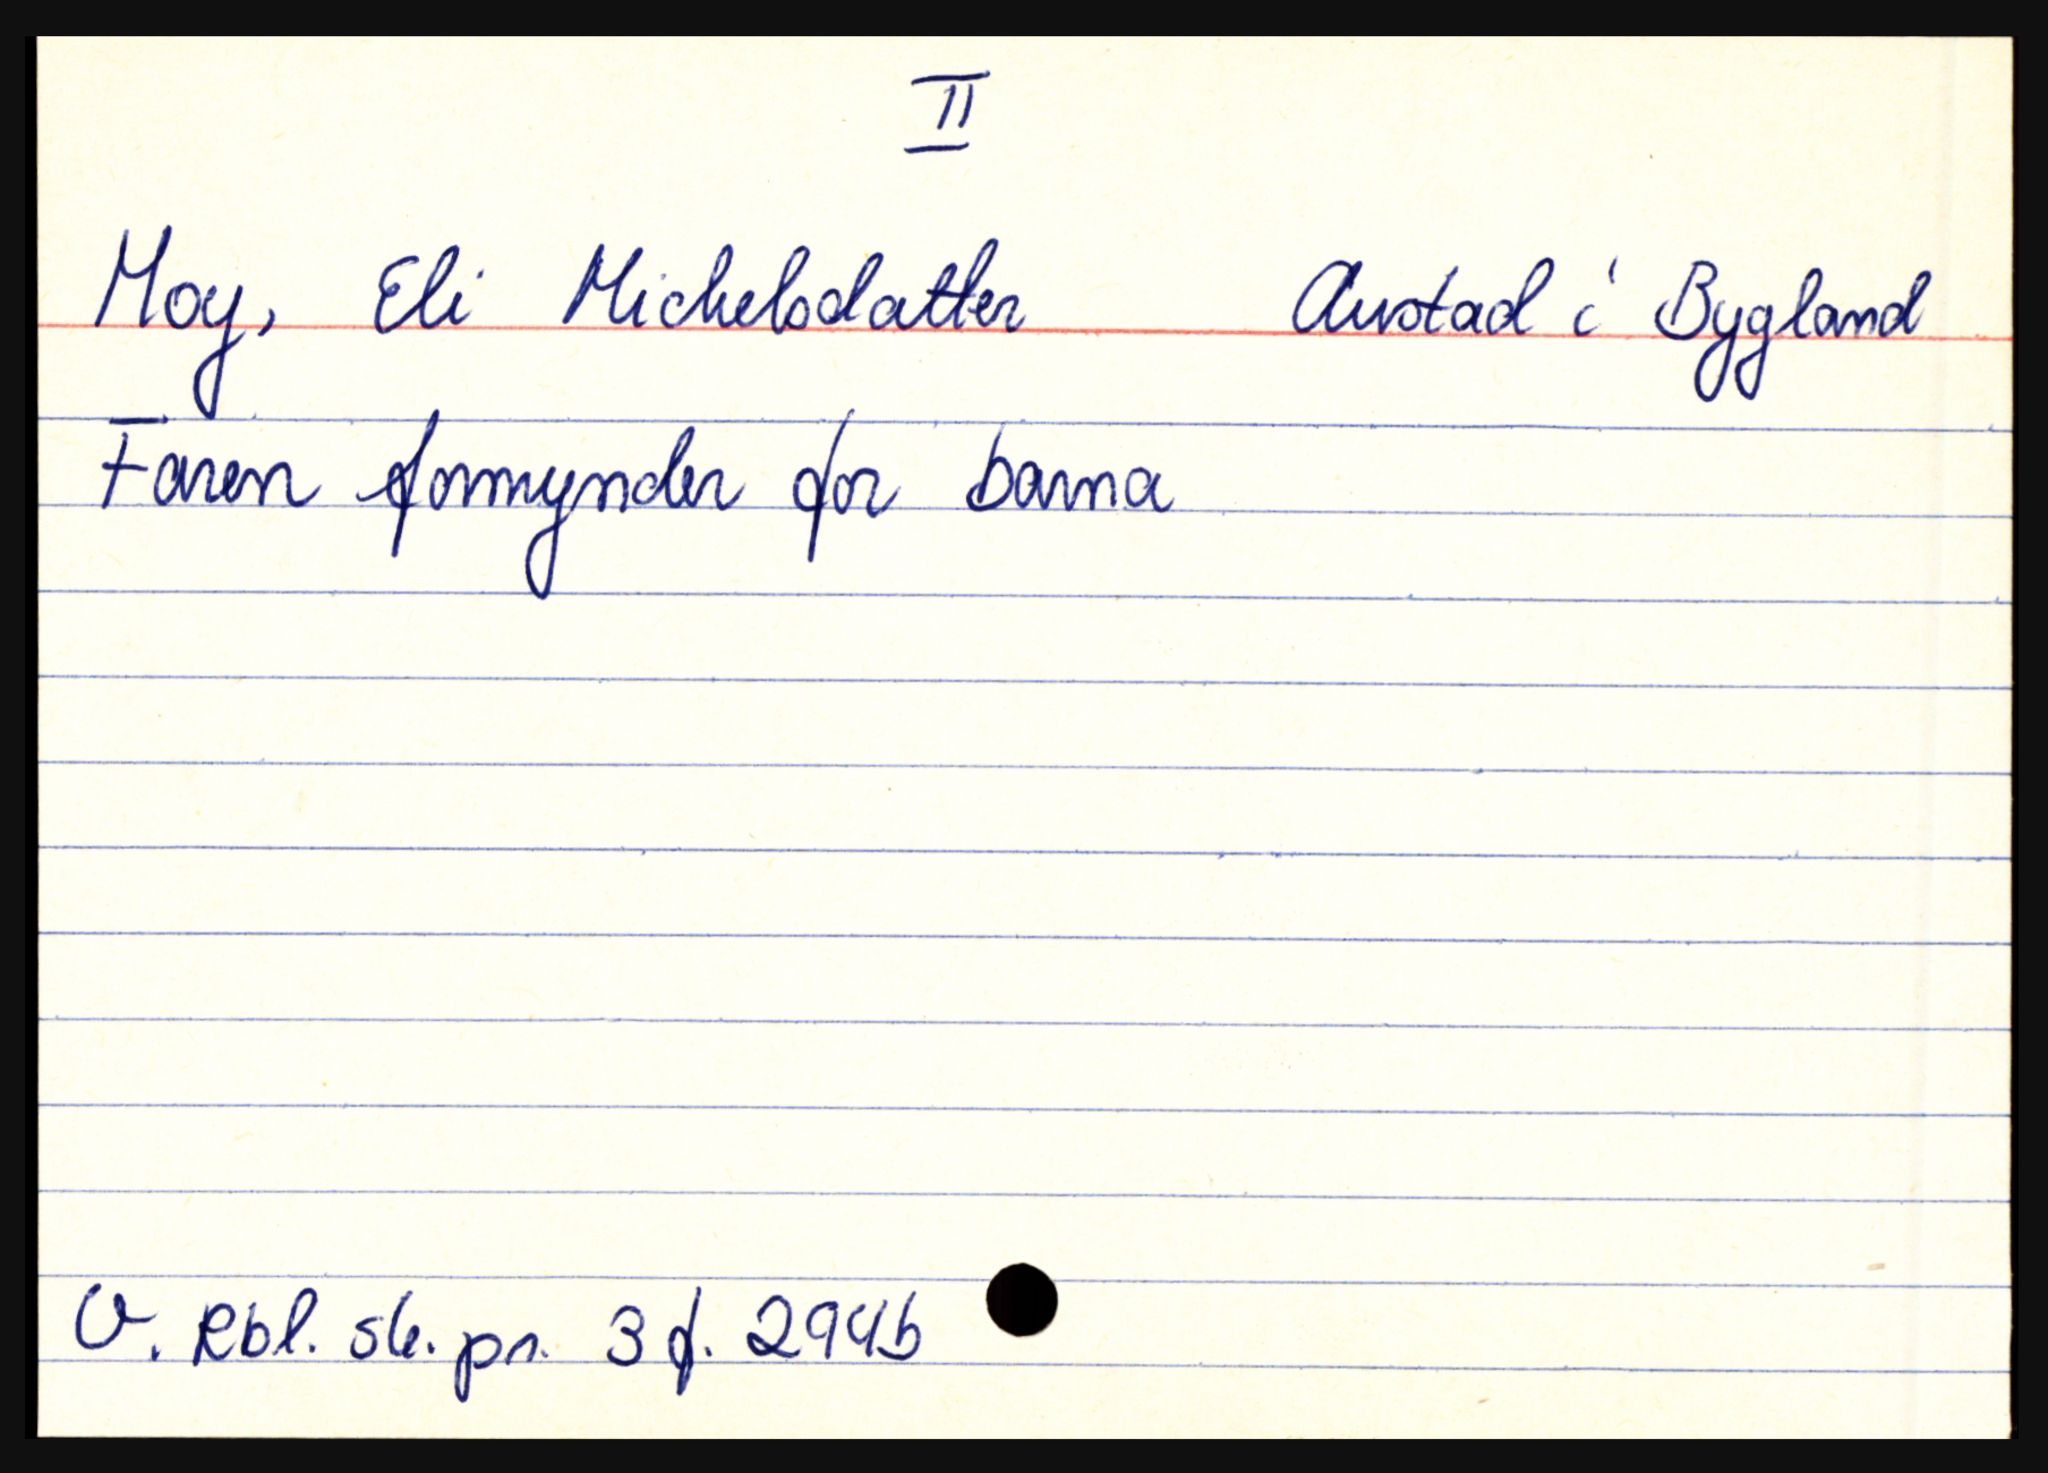 II
Moy, Eli Michelsdatter Austad i Bygland
Faren formynder for barna
V. Rbl. sk. pr. 3 f. 294b